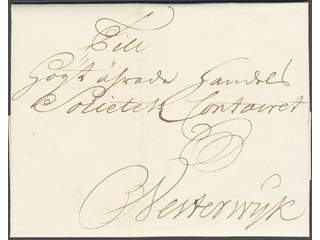 Till
Högt ährade Handels
Societets Contoiret
Westerwijk